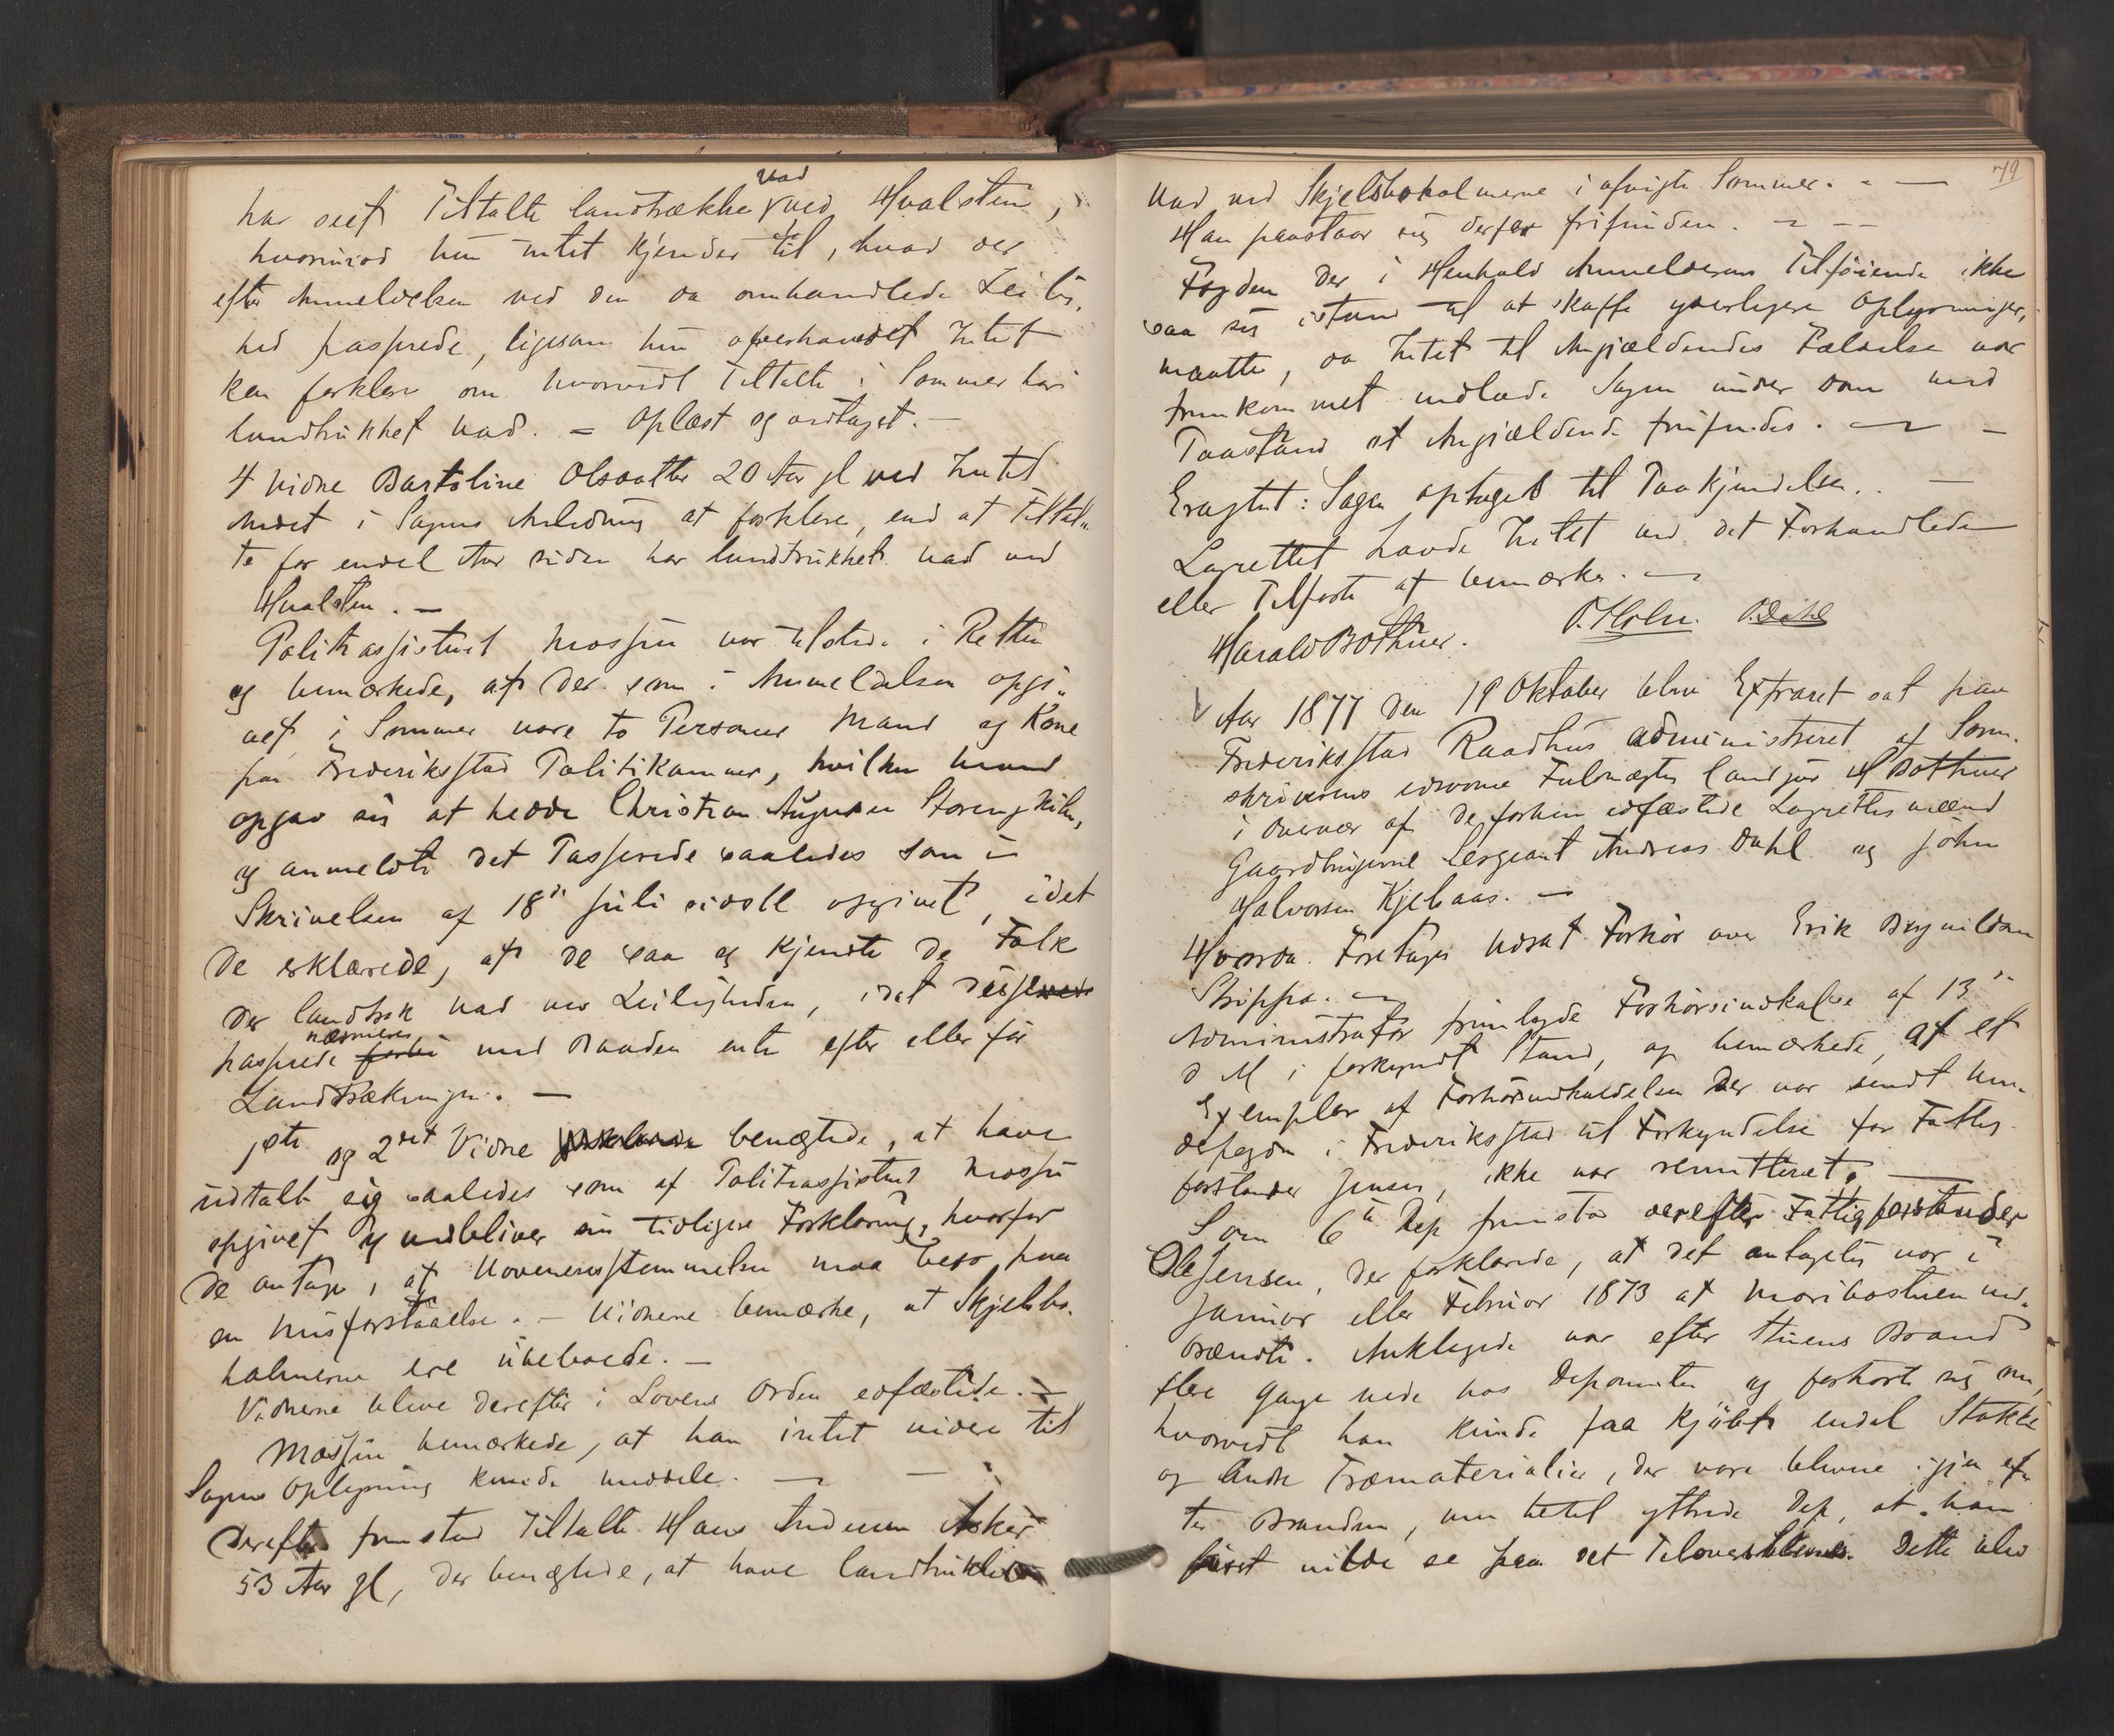 har seet Tiltalte landtrække Vad ved Hvalsten,
hvorimod hun intet kjender til, hvad der
efter Anmeldelsen ved den da omhandlede Leilig-
hed passerede, ligesom hun overhovedet Intet
kan forklare om hvorvidt Tiltalte i Sommer har
landtrukket Vad. = Oplæst og vedtaget. —
4 Vidne Bartoline Olsdatter 20 Aar gl ved Intet
Andet i Sagens Anledning at forklare, end at Tiltal-
te for endel Aar siden har landtrukket Vad ved
Hvalsten. —
Politiassistent Mossin var tilstede i Retten
og bemærkede, at der som i Anmeldelsen opgi-
vet i Sommer vare to Personer Mand og Kone
paa Frederiksstad Politikammer, hvilken Mand
opgav sig at hedde Christian August
og anmeldte det Passerede saaledes som i
Skrivelsen af 18de Juli sidstl opgivet, idet
de erklærede, at de saa og kjendte de Folk
der landtrak Vad ved Leiligheden, idet
passerede nærmere med Baaden enten efter eller før
Landtrækningen. —
1ste og 2det Vidne benægtede, at have
udtalt sig saaledes som af Politiassistent Mossin
opgivet og vedbliver sin tidligere Forklaring, hvorfor
de antage, at Uoverensstemmelsen maa bero paa
en Misforstaaelse. — Vidnerne bemærke, at Skjelsbo-
holmerne ere ubeboede. —
Vidnerne bleve derefter i Lovens Orden edfæstede. —
Mossin bemærkede, at han intet videre til
Sagens Oplysning kunde meddele. —
Derefter fremstod Tiltalte Hans Andersen Asker
53 Aar gl, der benægtede, at have landtrukket
79
Vad ved Skjelsboholmerne i afvigte Sommer. —
Han paastaar sig derfor frifunden. —
Fogden der i Henhold Anmelderens Tilføiende ikke
saa sig istand til at skaffe yderligere Oplysninger,
maatte, da Intet til Angjældendes Fældelse var
fremkommet indlade Sagen under Dom med
Paastand at Angjældende frifindes. —
Eragtet: Sagen optaget til Paakjendelse. —
Lagrettet havde Intet ved det Forhandlede
eller Tilførte at bemærke. —
Harald Bothner. O. Holm. O. Dahl
Aar 1877 den 19 Oktober blev Extraret sat paa
Frederiksstad Raadhus administreret af Soren-
skriverens edsvorne Fuldmægtig cand jur H Bothner
i Overvær af de forhen edfæstede Lagrettesmænd
Gaardbrugerne Sergeant Andreas Dahl og John
Halvorsen Kjebaas. —
Hvorda Foretages udsat Forhør over Erik Brynildsen
Administrator fremlagde Forhørsindkaldelse af 13de
d M i forkyndt Stand, og bemærkede, at et
Exemplar af Forhørsindkaldelsen der var sendt Un-
derfogden i Frederiksstad til Forkyndelse for Fattig-
forstander Jensen, ikke var remitteret. —
Som 6te Dep fremstod derefter Fattigforstander
Ole Jensen, der forklarede, at det antagelig var i
Januar eller Februar 1873 at Mariboestuen ned-
brændte. Anklagede var efter Stuens Brand
flere Gange nede hos Deponenten og forhørte sig om,
hvorvidt han kunde faa kjøbt endel Stokke
og andre Træmaterialier, der vare blevne igjen ef-
ter Branden, men hertil yttrede Dep, at han
først vilde se paa det Tiloversblevne. Dette blev